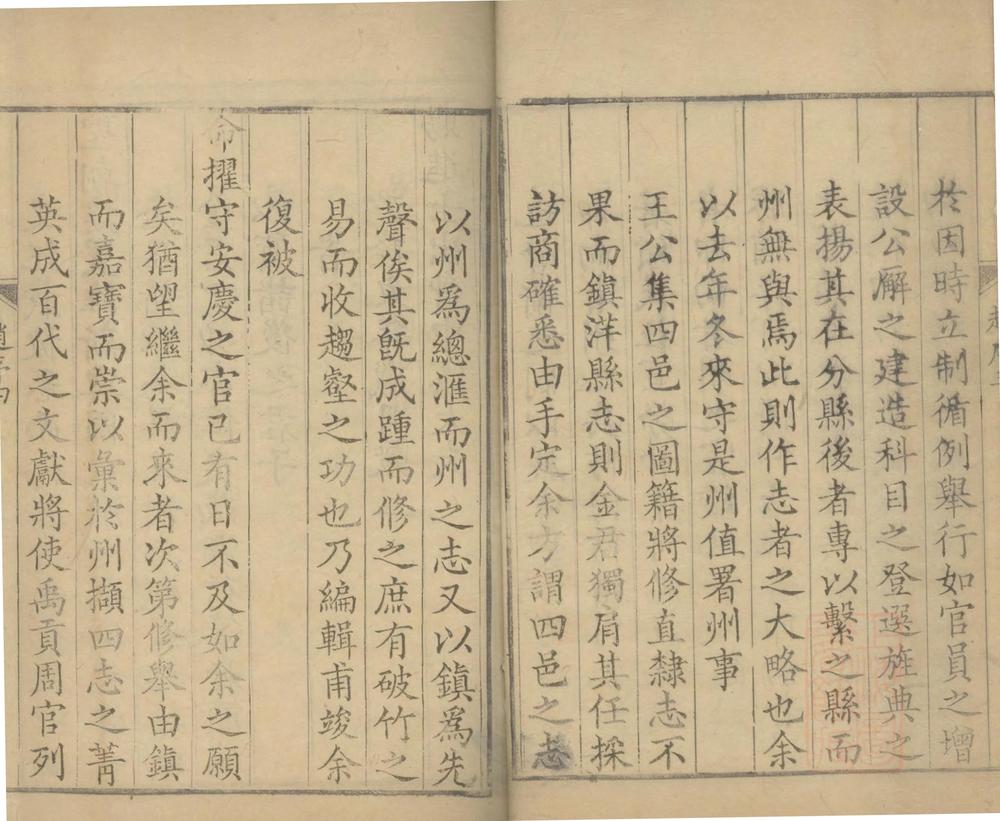 於因時立制循例舉行如官員之增
設公廨之建造科目之登選旌典之
表揚其在分縣後者專以繫之縣而
州無與焉此則作志者之大略也余
以去年冬來守是州值署州事
王公集四邑之圖籍將修直隸志不
果而鎮洋縣志則金君獨肩其任採
訪商確悉由手定余方謂四邑之志
以州爲總滙而州之志又以鎮爲先
聲俟其旣成踵而修之庶有破竹之
易而收趨壑之功也乃編輯甫竣余
復被
命擢守安慶之官已有日不及如余之願
矣猶望繼余而來者次第修舉由鎮
而嘉寶而崇以彙於州擷四志之菁
英成百代之文獻將使禹貢周官列